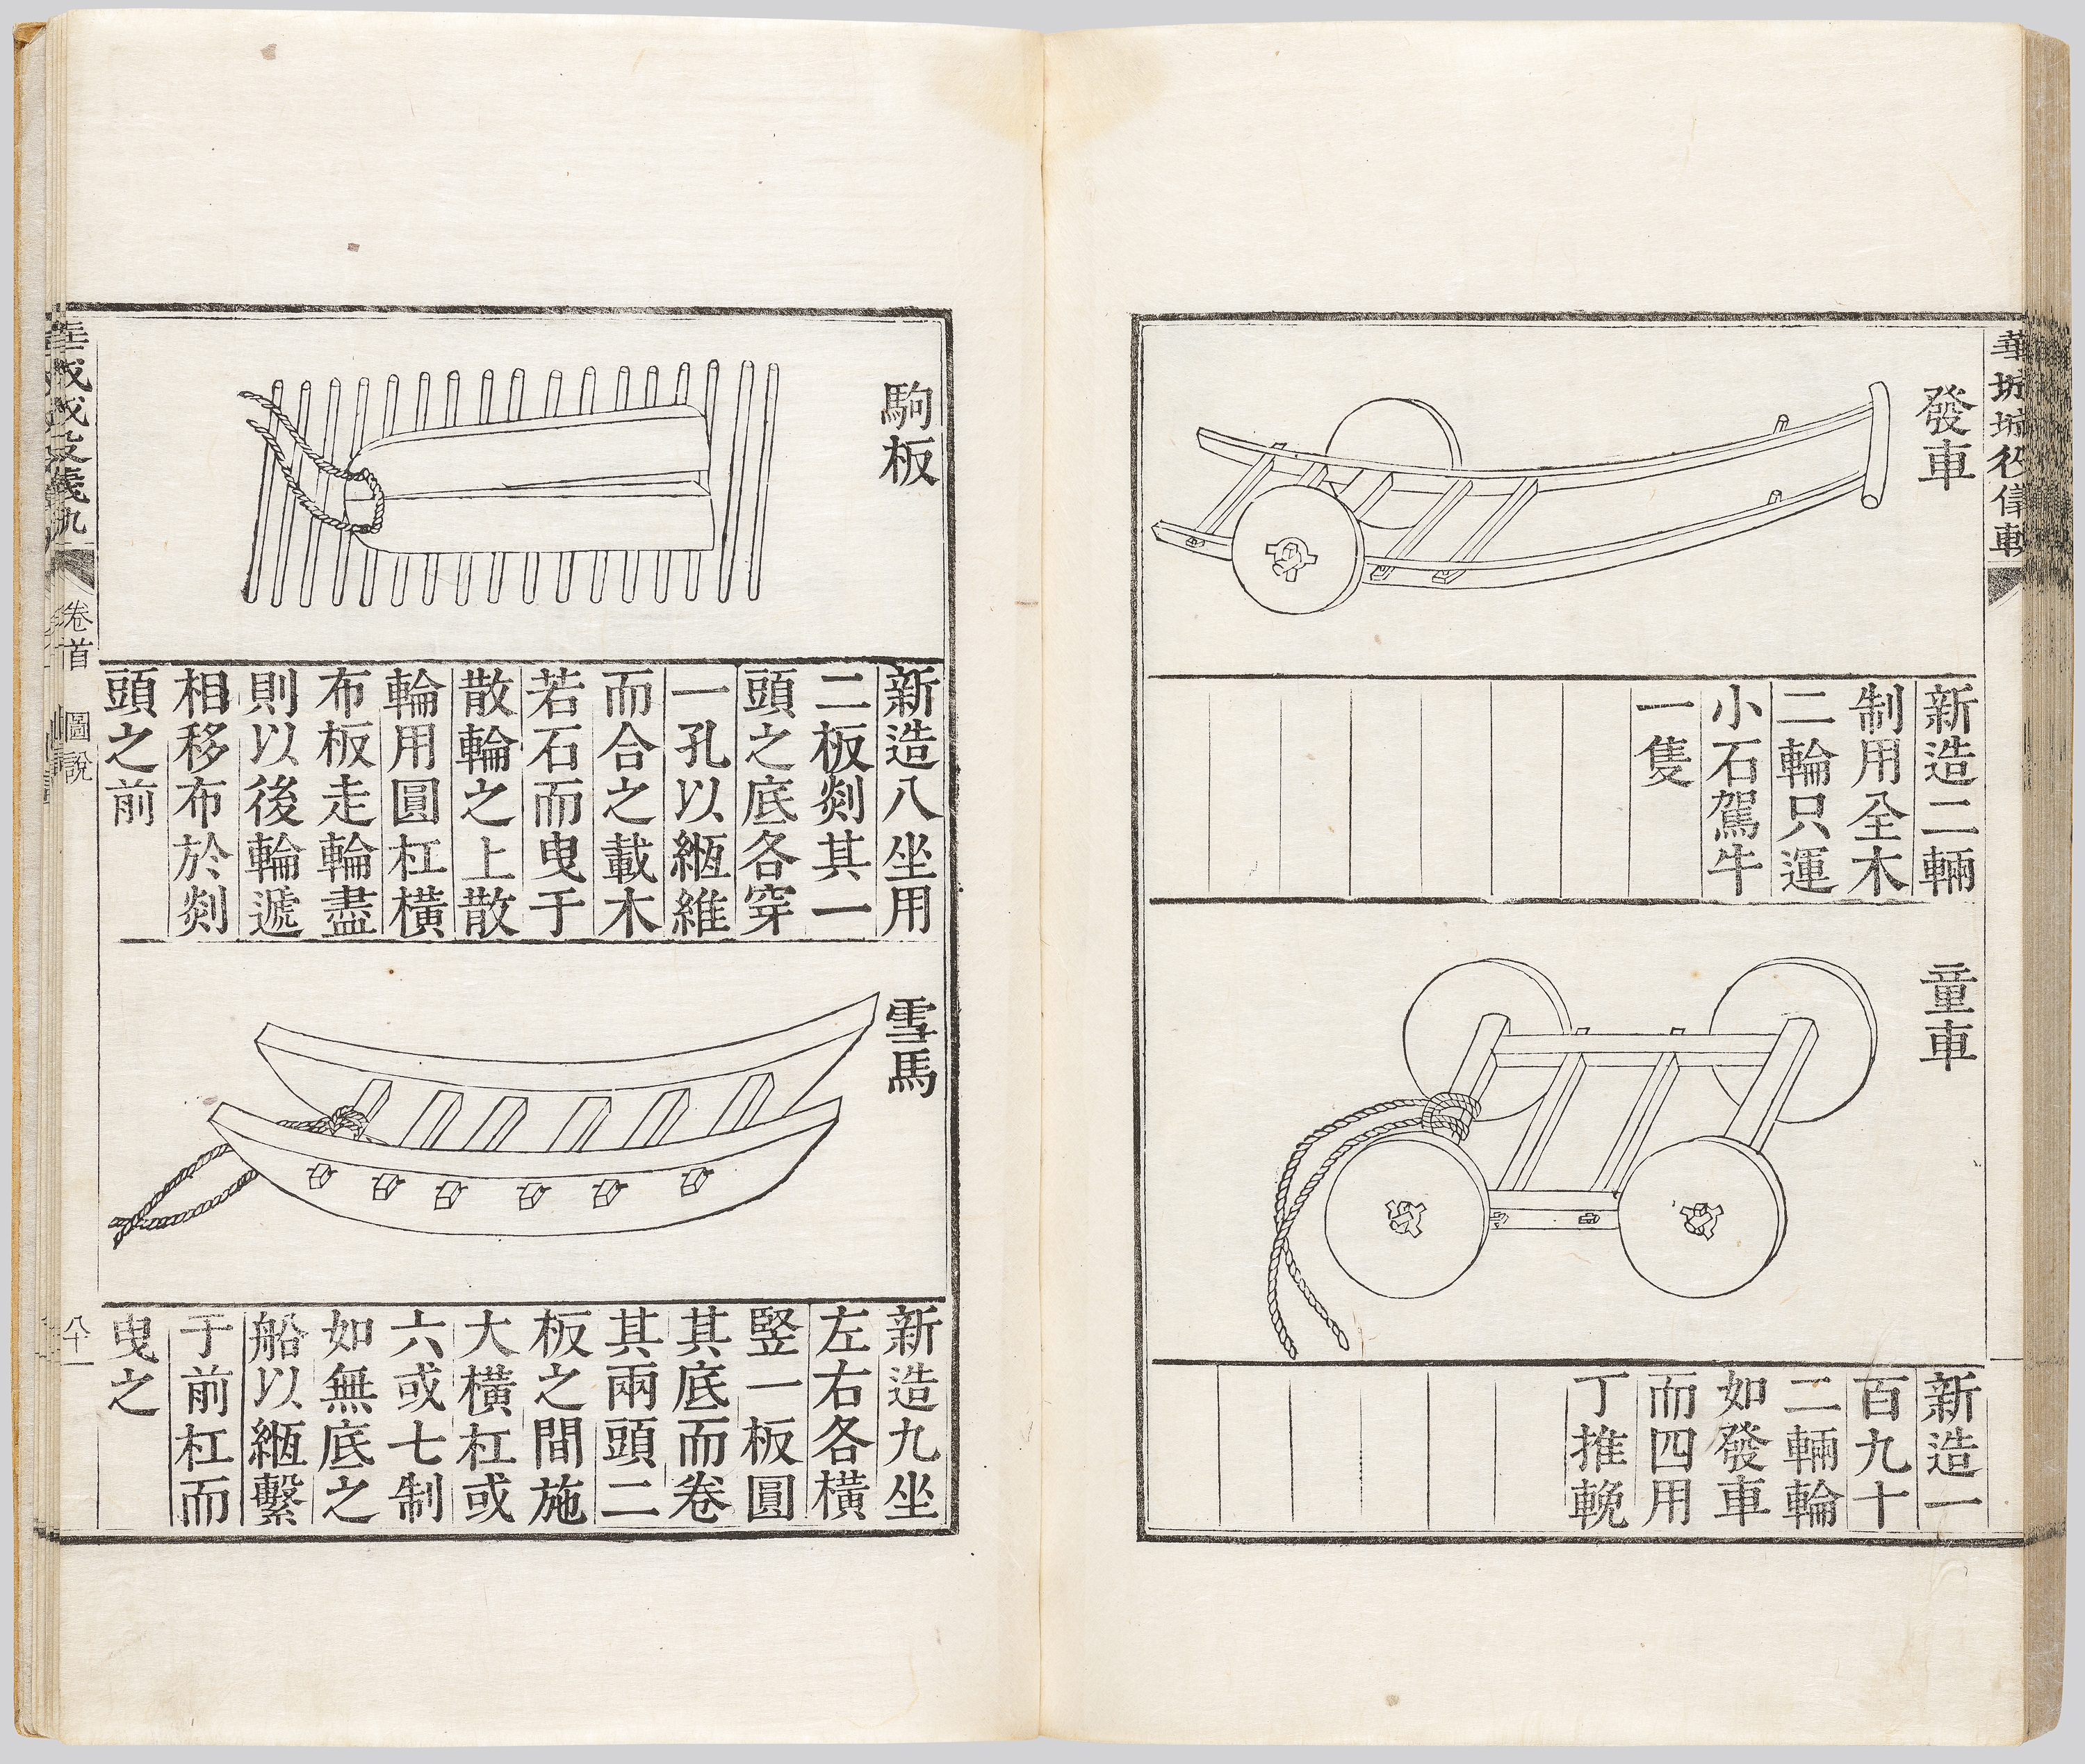 發車
新造二輛
制用全木
二輪只運
小石駕牛
一隻
童車
新造一
百九十
二輛輪
如發車
而四用
丁推輓
駒板
新造八坐用
二板剡其一
頭之底各穿
一孔以縆維
而合之載木
若石而曳于
散輪之上散
輪用圓杠橫
布板走輪盡
則以後輪遞
相移布於剡
頭之前
雪馬
新造九坐
左右各橫
竪一板圓
其底而卷
其兩頭二
板之間施
大橫杠或
六或七制
如無底之
船以縆繫
于前杠而
曳之
卷首
圖說
八十一